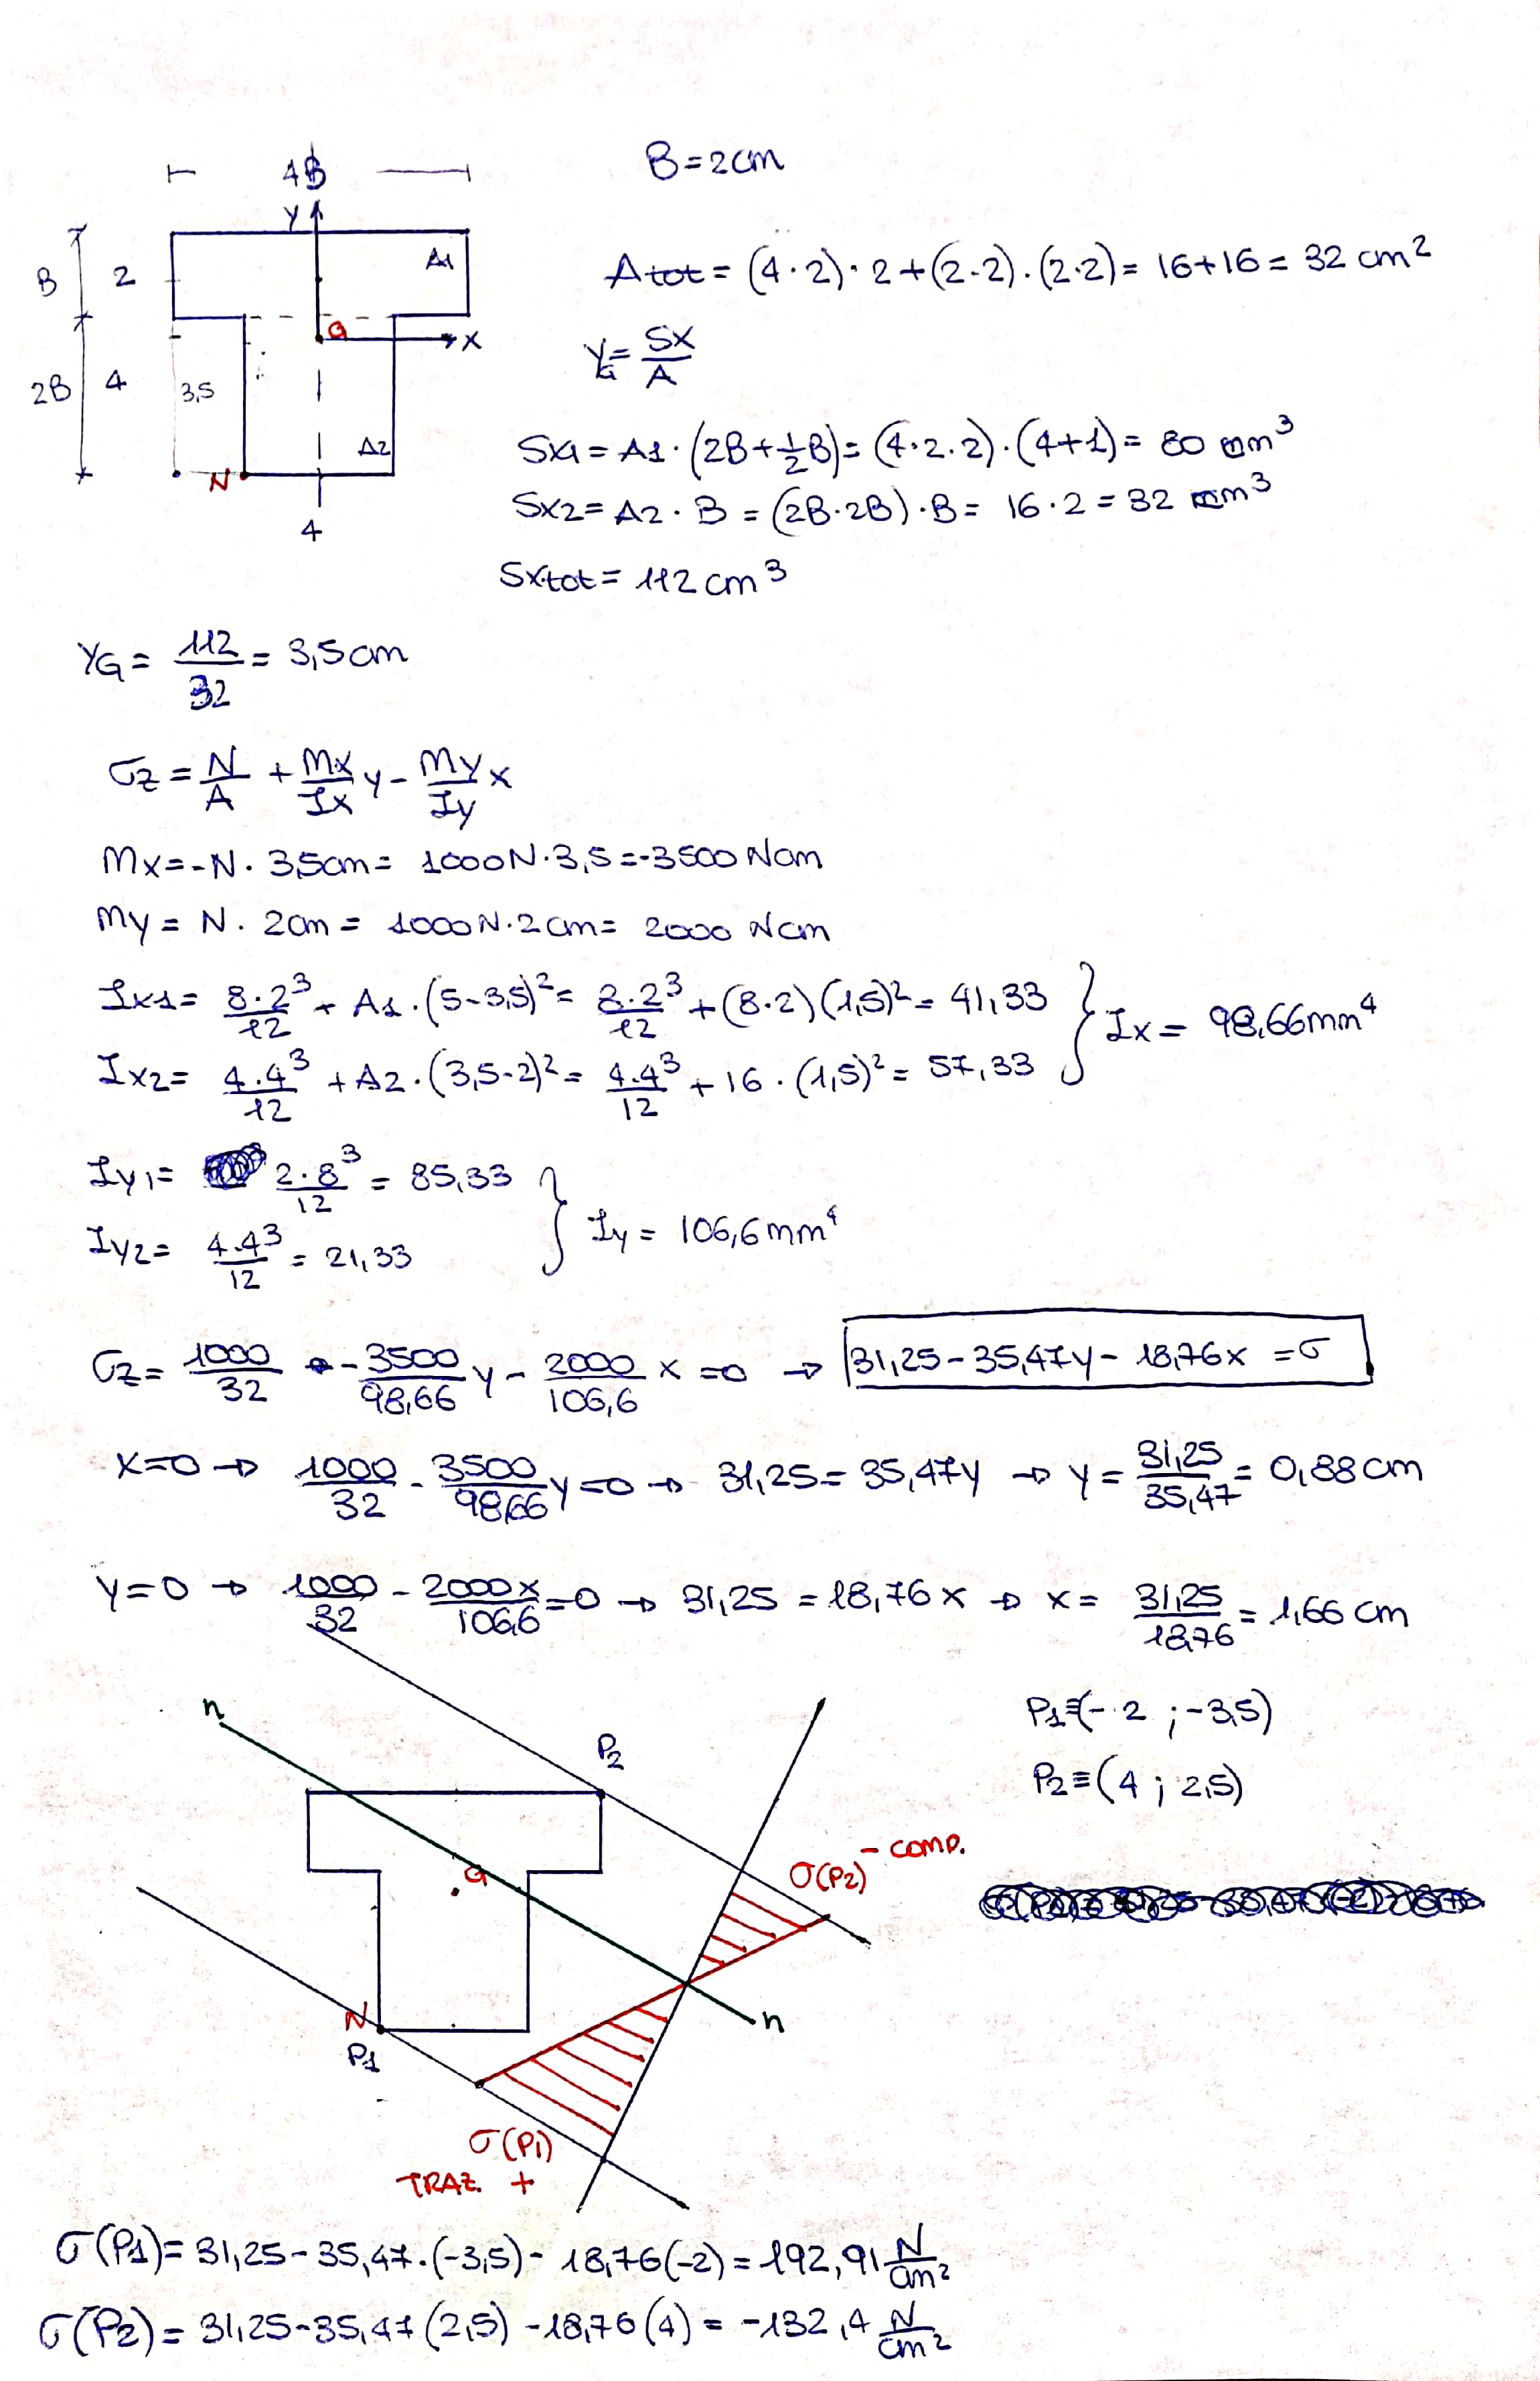 4B
B=2cm
y
B 2 A1
Atot = (4·2)·2+(2·2)·(2·2)= 16+16 = 32 cm²
G x
YG= SX/A
2B 4 3,5
A2
N
4
SX1 = A1·(2B+1/2B)= (4·2·2)·(4+1)= 80 cm³
SX2= A2·B = (2B·2B)·B= 16·2 = 32 cm³
SXtot= 112 cm³
YG = 112/32 = 3,5cm
σz = N/A + Mx/Ix y - My/Iy x
Mx=-N·3,5cm= 1000N·3,5=-3500 Ncm
My = N·2cm = 1000N·2cm= 2000 Ncm
Ix1= 8·2³/12 + A1·(5-3,5)²= 8·2³/12 +(8·2)(1,5)²= 41,33
Ix2= 4·4³/12 +A2·(3,5-2)²= 4·4³/12 + 16·(1,5)²= 57,33
} Ix = 98,66mm⁴
Iy1= 2·8³/12 = 85,33
Iy2= 4·4³/12 = 21,33
} Iy = 106,6mm⁴
σz= 1000/32 - 3500/98,66 y - 2000/106,6 x =0 → 31,25-35,47y-18,76x =σ
x=0 → 1000/32 - 3500/98,66 y=0 → 31,25= 35,47y → y= 31,25/35,47 = 0,88cm
y=0 → 1000/32 - 2000x/106,6 =0 → 31,25 = 18,76x → x= 31,25/18,76 = 1,66 cm
n
P2
P1≡(-2 ; -3,5)
P2≡(4 ; 2,5)
σ(P2) - COMP.
G
N
P1
n
σ(P1)
TRAZ. +
σ(P1)= 31,25-35,47·(-3,5)- 18,76(-2)= 192,91 N/cm²
σ(P2)= 31,25-35,47(2,5)-18,76(4)= -132,4 N/cm²